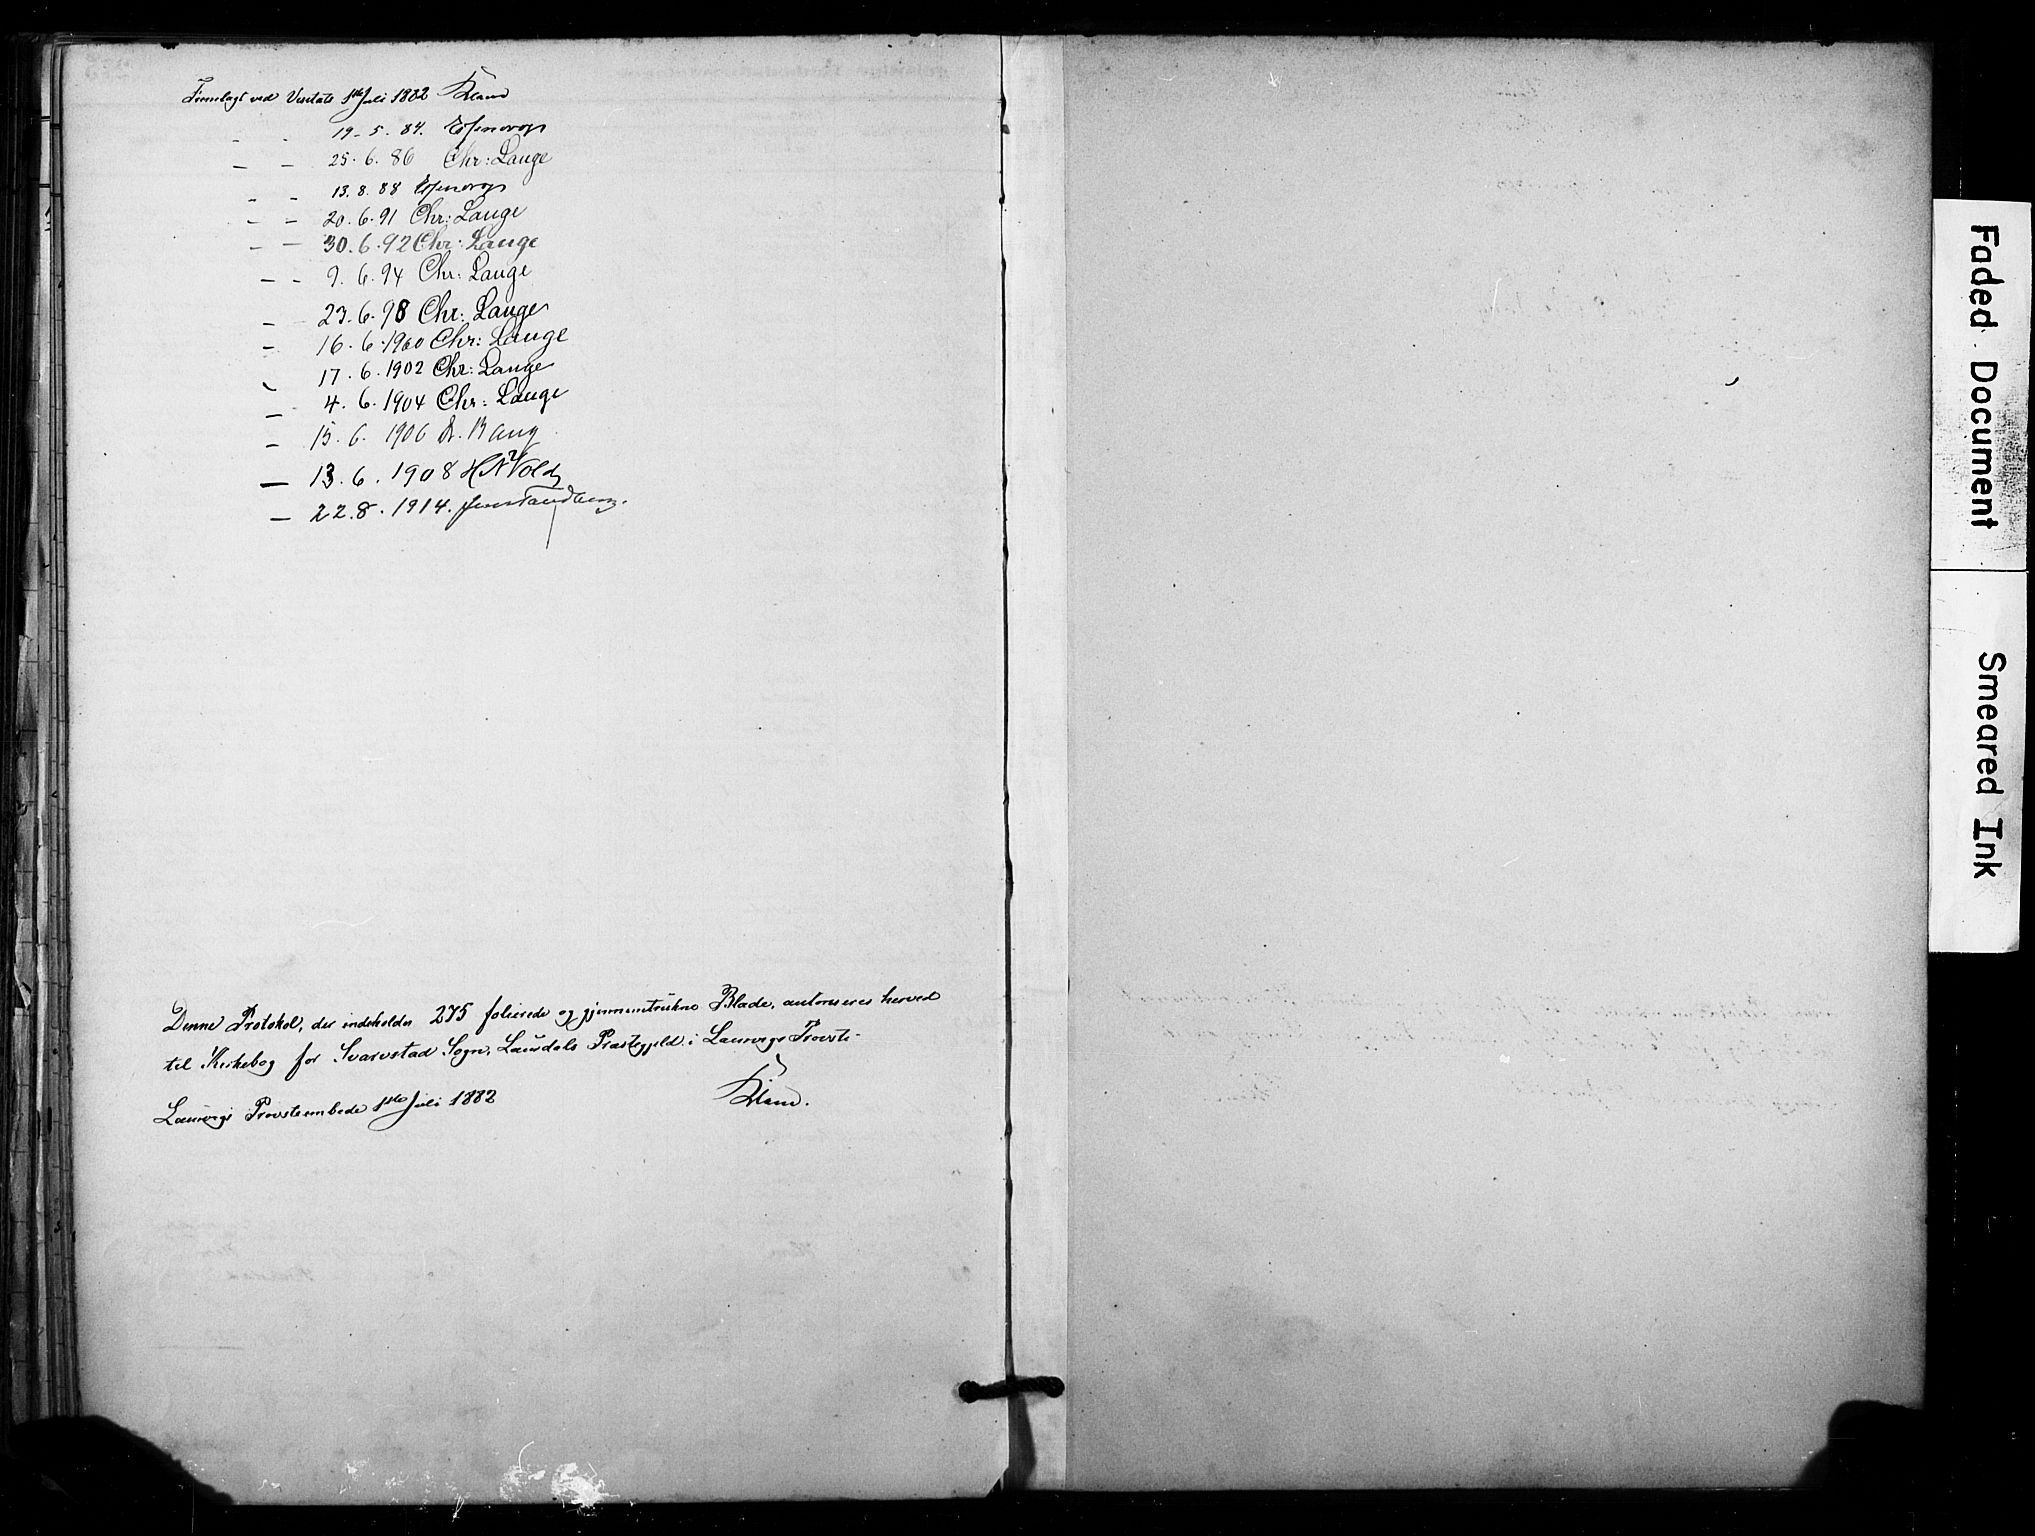 Fremlagt ved Visitats 1ste Juli 1882
" " 19-5. 84.
— — 25. 6. 86 Chr: Lange
" " 13. 8. 88
— — 20. 6. 91 Chr: Lange
— — 30. 6. 92 Chr: Lange
— — 9. 6. 94 Chr: Lange
— 23. 6. 98 Chr: Lange
— 16. 6. 1900 Chr: Lange
— 17. 6. 1902 Chr: Lange
— 4. 6. 1904 Chr: Lange
— 15. 6. 1906 Bang
— 13. 6. 1908 Hvold
— 22. 8. 1914. Jens Tandberg.
Denne Protokol, der indeholder 275 folierede og gjennemtrukne Blade, autoriseres herved
til Kirkebog for Svarvstad Sogn, Laurdals Præstegjeld i Laurvigs Provsti-
Laurvigs Provsteembede 1ste Juli 1882
Faded Document
Smeared Ink